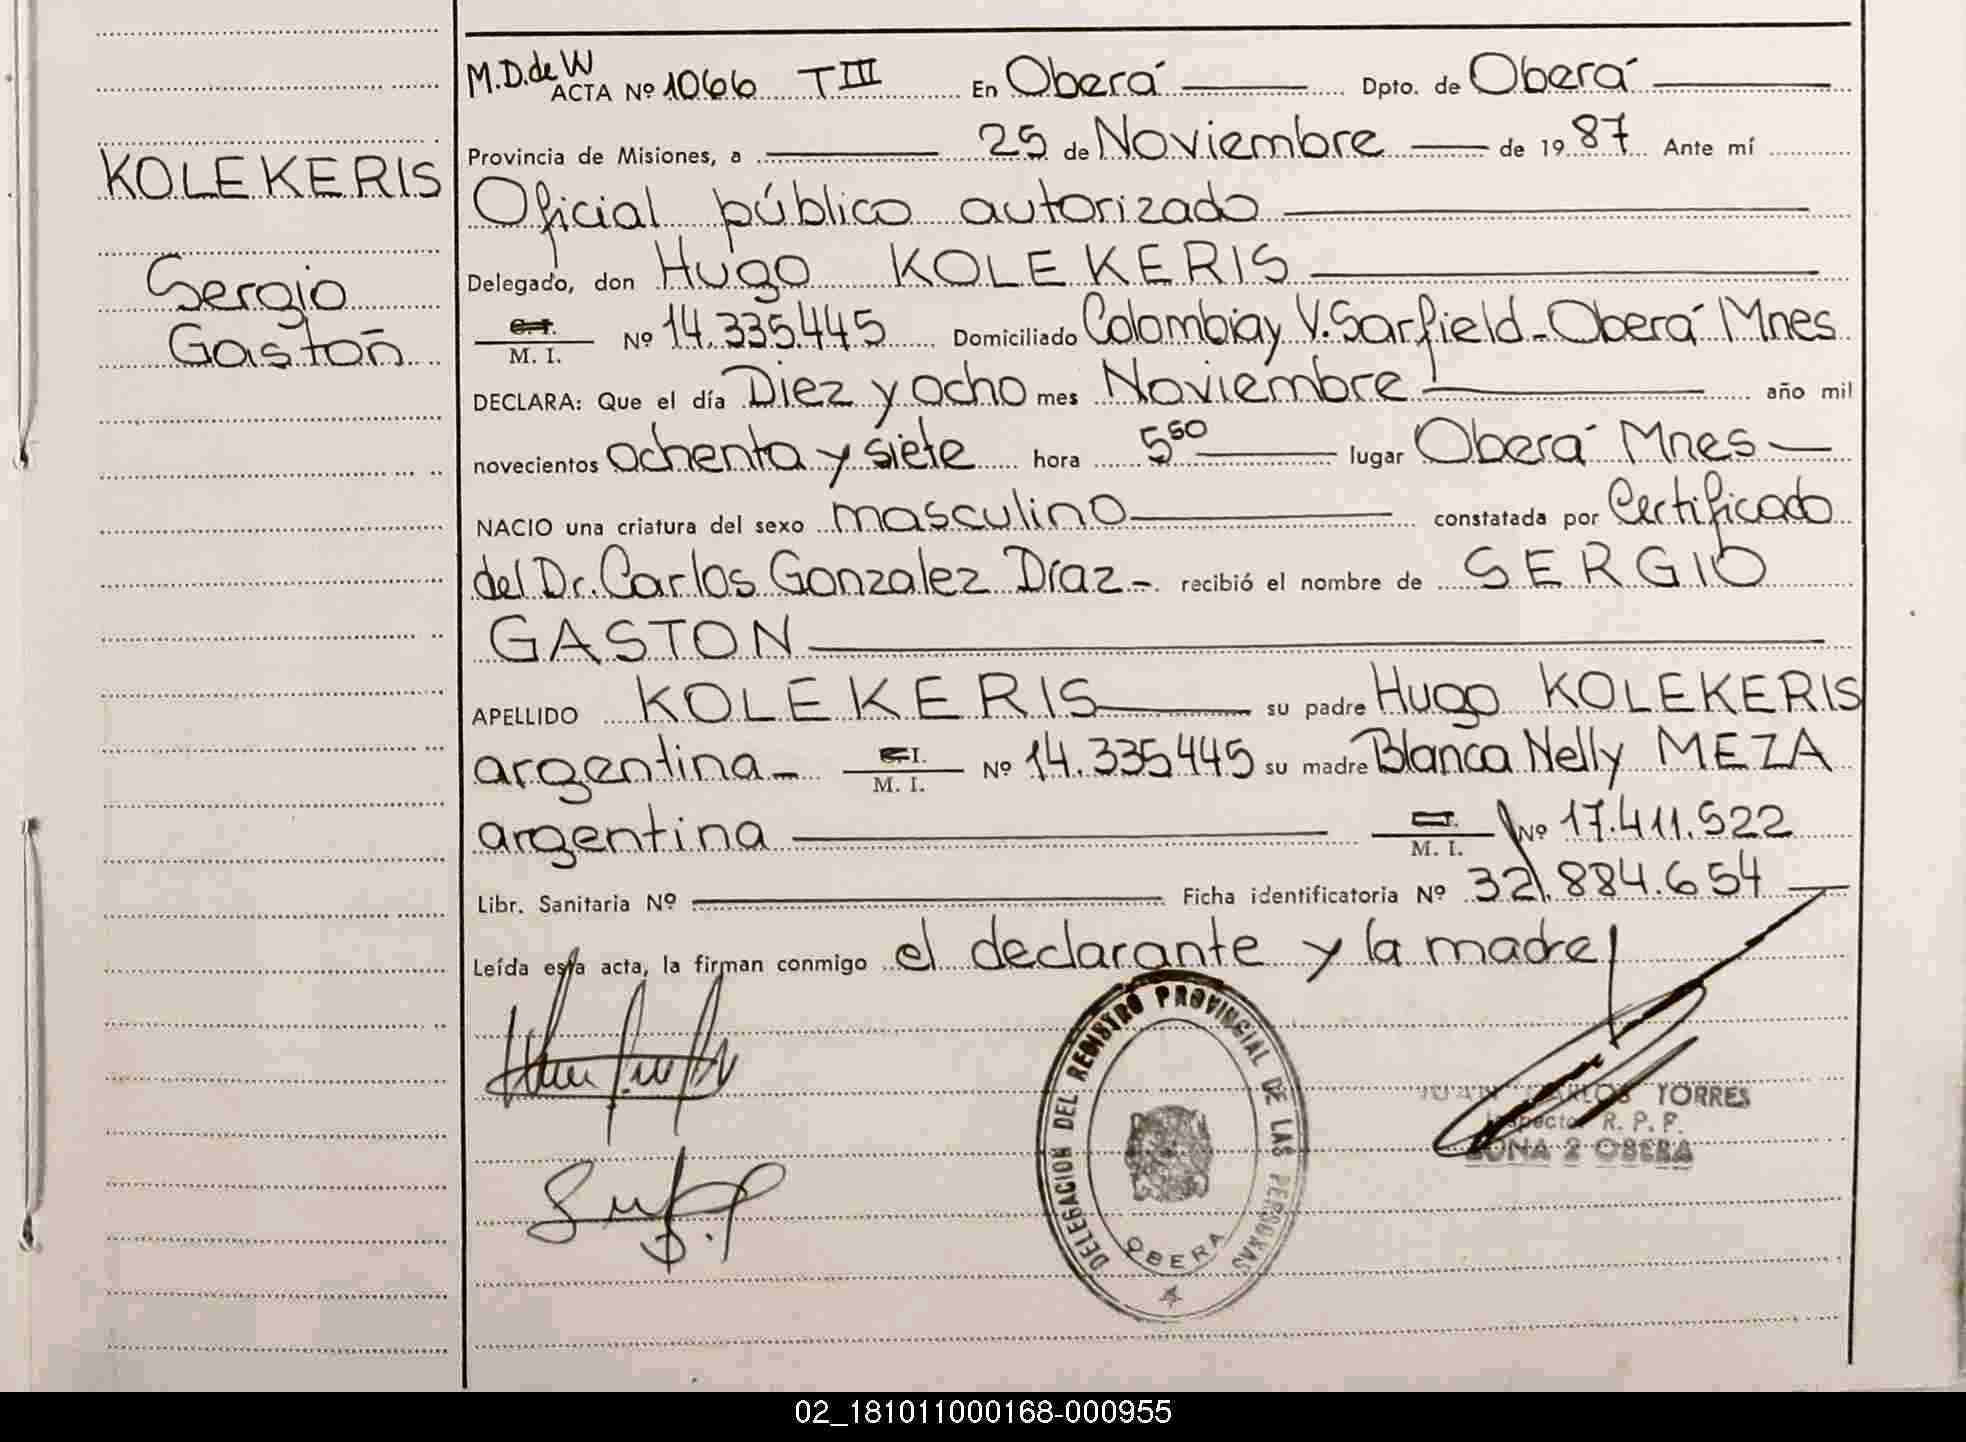 KOLEKERIS
Sergio
Gastón
M.D. de W
ACTA Nº 1066 TIII En Oberá Dpto. de Oberá
Provincia de Misiones, a 25 de Noviembre de 1987 Ante mí
Oficial público autorizado
Delegado, don Hugo KOLEKERIS
C. I.
M. I. Nº 14.335.445 Domiciliado Colombia y V. Sarfield - Oberá Mnes
DECLARA: Que el día Diez y ocho mes Noviembre año mil
novecientos ochenta y siete hora 5 50 lugar Oberá Mnes
NACIO una criatura del sexo masculino constatada por Certificado
del Dr. Carlos Gonzalez Díaz - recibió el nombre de SERGIO
GASTON
APELLIDO KOLEKERIS su padre Hugo KOLEKERIS
argentina - C. I.
M. I. Nº 14.335.445 su madre Blanca Nelly MEZA
argentina C. I.
M. I. Nº 17.411.522
Libr. Sanitaria Nº Ficha identificatoria Nº 32.884.654
Leída esta acta, la firman conmigo el declarante y la madre
DELEGACION DEL REGISTRO PROVINCIAL DE LAS PERSONAS
OBERA
JUAN CARLOS TORRES
Inspector R. P. P.
ZONA 2 OBERA
02_181011000168-000955